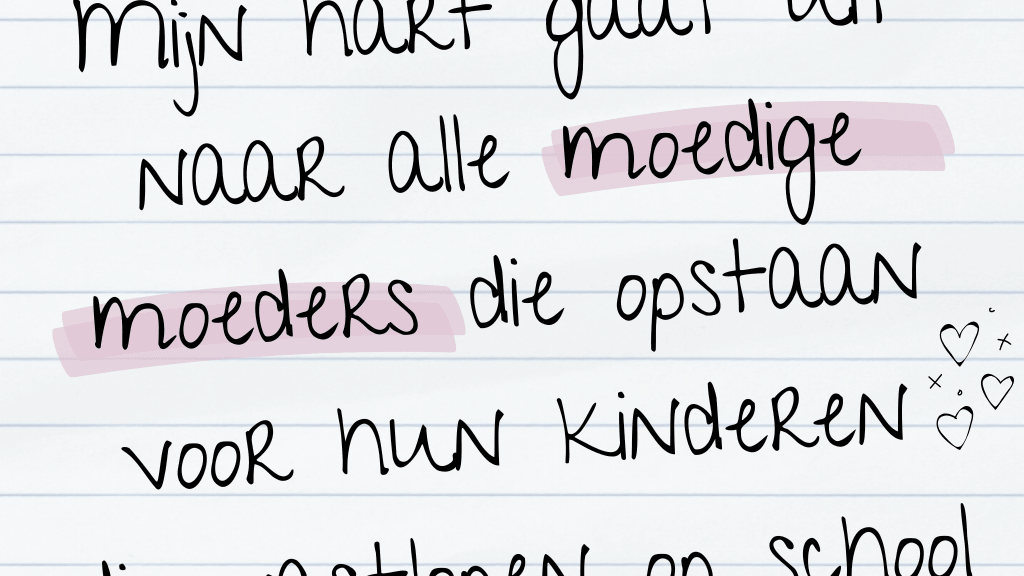 mijn hart gaat uit
naar alle moedige
moeders die opstaan
voor hun kinderen
die vastlopen op school